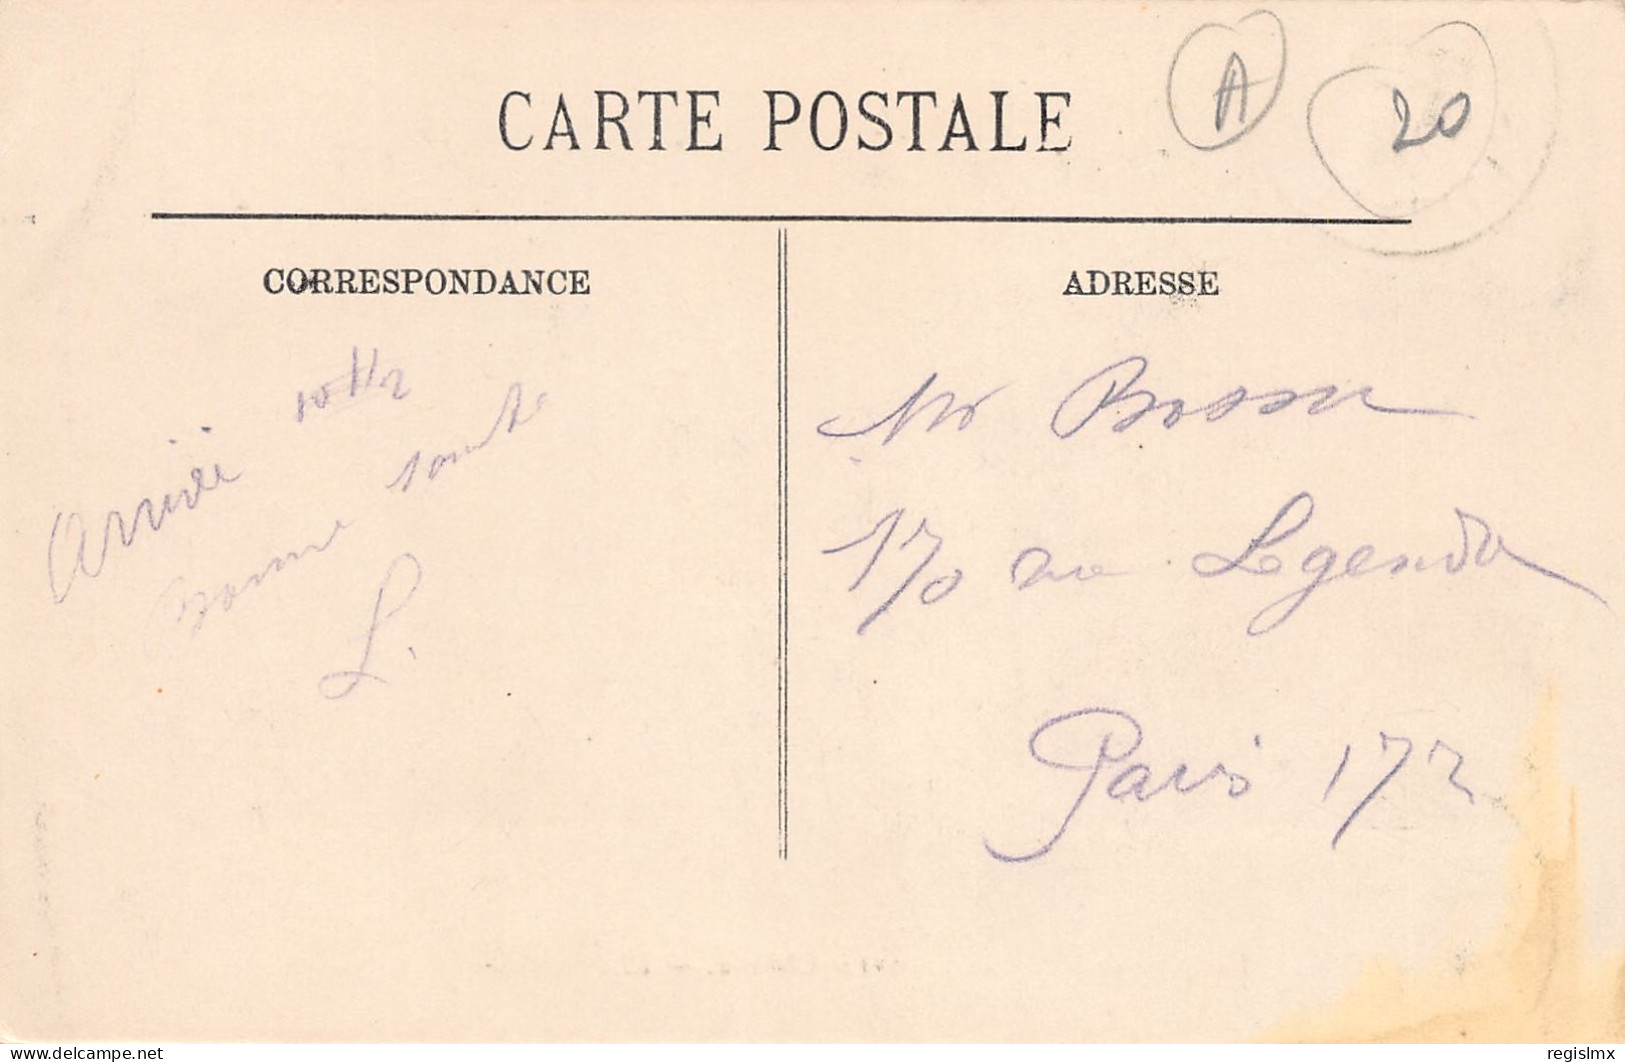 CARTE POSTALE
A
20
CORRESPONDANCE
ADRESSE
Arrivée 10 H 1/2
Bonne santé
L.
Mr Bossu
170 rue Legendre
Paris 17e
delcampe.net
regislmx